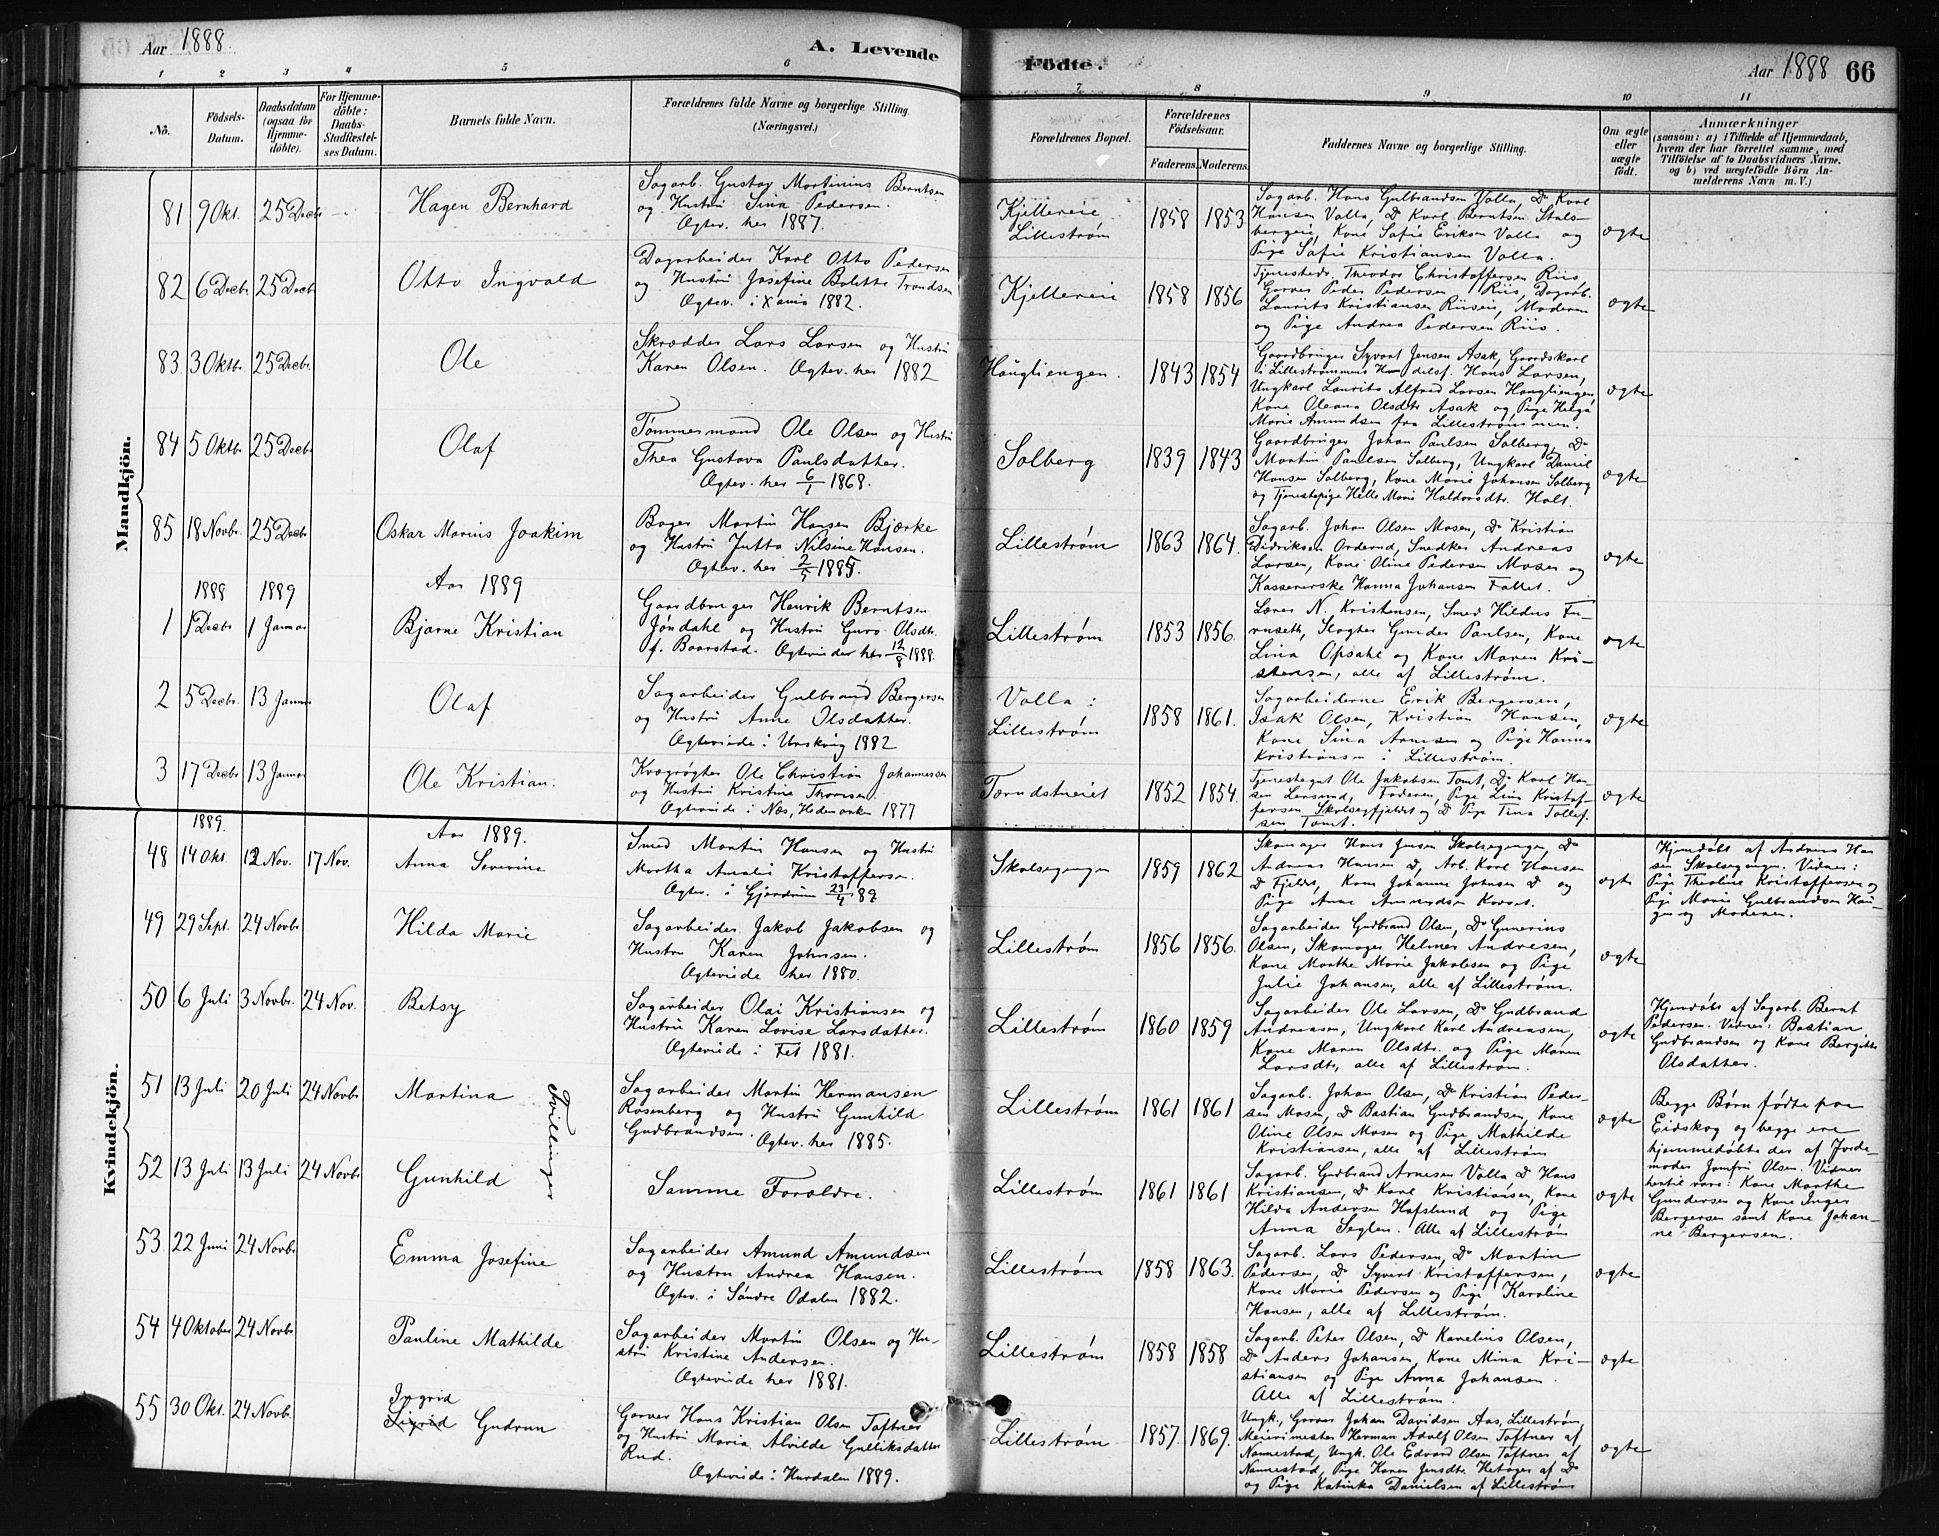 Aar 1888.
A. Levende
Fødte.
Aar 1888 66
1 2 3 4 5 6 7 8 9 10 11
No.
Födsels-
Datum.
Daabsdatum
(ogsaa for
Hjemme-
döbte).
For Hjemme-
döbte:
Daabs-
Stadfæstel-
ses Datum.
Barnets fulde Navn.
Forældrenes fulde Navne og borgerlige Stilling.
(Næringsvei.)
Forældrenes Bopæl.
Forældrenes
Födselsaar.
Faderens. Moderens.
Faddernes Navne og borgerlige Stilling.
Om ægte
eller
uægte
født.
Anmærkninger
(saasom: a) i Tilfælde af Hjemmedaab,
hvem der har forrettet samme, med
Tilföielse af to Daabsvidners Navne.
og b) ved uægtefödte Börn An-
melderens Navn m. V.)
Mandkjön.
81 9 Okt. 25 Decbr
Hagen Bernhard
Sagarb. Gustav Martinius Berntsen
og Hustru Sina Pedersen.
Ægtev. her 1887.
Kjellereie
Lillestrøm
1858 1853
Sagarb. Hans Gulbrandsen Volla, Do Karl
Hansen Volla, Do Karl Berntsen Stals-
bergeie, Kone Sofie Eriksen Volla og
Pige Sofie Kristiansen Volla.
ægte
82 6 Decbr. 25 Decb
Otto Ingvald
Dagarbeider Karl Otto Pedersen
og Hustru Josefine Bolette Trondsen
Ægtev. i Xania 1882.
Kjellereie
1858 1856
Tjenestedr. Theodor Christoffersen Riis
Garver Peder Pedersen Riis, Dagarb.
Laurits Kristiansen Riiseie, Moderen
og Pige Andrea Pedersen Riis.
ægte
83 3 Oktbr. 25 Decbr.
Ole
Skrædder Lars Larsen og Hustru
Karen Olsen. Ægtev. her 1882
Haugliengen.
1843 1854
Gaardbruger Syvert Jensen Asak, Gaardskarl
i Lillestrømmens Handelsf. Hans Larsen,
Ungkarl Laurits Alfred Larsen Haugliengen,
Kone Oleana Olsdtr Asak og Pige Helga
Marie Amundsen fra Lillestrømmen.
ægte
84 5 Oktbr 25 Decbr
Olaf
Tømmermand Ole Olsen og Hustru
Thea Gustava Paulsdatter.
Ægtev. her 6/1 1868.
Solberg
1839 1843
Gaardbruger Johan Paulsen Solberg, Do
Martin Paulsen Solberg, Ungkarl Daniel
Hansen Solberg, Kone Marie Johansen Solberg
og Tjenestepige Helle Marie Haldorsdtr. Holt.
ægte
85 18 Novbr. 25 Decbr
Oskar Marius Joakim
Bager Martin Hansen Bjærke
og Hustru Jutta Nilsine Hansen.
Ægtev. her 2/5 1885.
Lillestrøm
1863 1864.
Sagarb. Johan Olsen Mosen, Do Kristian
Didriksen Orderud, Snedker Andreas
Larsen, Kone Oline Pedersen Mosen og
Kassererske Hanna Johansen Fallet.
ægte
1888 1889
Aar 1889
1 1 Decbr 1 Januar
Bjarne Kristian
Gaardbruger Henrik Berntsen
Jøndahl og Hustru Guro Olsdtr.
Of. Baarstad. Ægteviede her 12/8 1888.
Lillestrøm
1853 1856.
Lærer N. Kristensen, Smed Hildus Fu-
ruseth, Slagter Gunder Paulsen, Kone
Lina Opsahl og Kone Maren Kri-
stensen, alle af Lillestrøm.
ægte
2 5 Decbr. 13 Januar
Olaf
Sagarbeider Gulbrand Bergersen
og Hustru Anne Olsdatter.
Ægteviede i Urskoug 1882
Volla:
Lillestrøm
1858 1861.
Sagarbeiderne Erik Bergersen,
Isak Olsen, Kristian Hansen,
Kone Sina Arnesen og Pige Hanna
Kristiansen i Lillestrøm.
ægte
3 17 Decbr 13 Januar
Ole Kristian.
Kvægrøgter Ole Christian Johannessen
og Hustru Kristine Thorsen
Ægteviede i Næs, Hedemarken 1877
1852 1854
Tjenestegut Ole Jakobsen Tomt, Do Karl Han-
sen Lersund, Faderen, Pige Lina Kristof-
fersen Skolsegfjeldet og Do Pige Tina Tollef-
sen Tomt.
ægte
Kvindekjön.
1889.
Aar 1889.
48 14 Okt. 12 Nov. 17 Nov.
Anna Severine
Smed Martin Hansen og Hustru
Martha Amalie Kristoffersen.
Ægtev. i Gjerdrum 23/4 82
1859 1862
Skomager Hans Jensen Skolsegengen, Do
Andreas Hansen Do, Arb. Karl Hansen
Do Fjeldet, Kone Johanne Johnsen Do og
Pige Anne Amundsen
ægte
Hjemdøbt af Andreas Han-
sen Skolsegengen. Vidner:
Pige Theoline Kristoffersen og
Pige Marie Gulbrandsen Hau-
gen og Moderen.
49 29 Sept. 24 Novbr.
Hilda Marie
Sagarbeider Jakob Jakobsen og
Hustru Karen Johnsen.
Ægteviede her 1880.
Lillestrøm
1856 1856.
Sagarbeider Gudbrand Olsen, Do Gunerius
Olsen, Skomager Helmer Andresen,
Kone Marthe Marie Jakobsen og Pige
Julie Johansen, alle af Lillestrøm.
ægte
50 6 Juli 3 Novbr. 24 Nov.
Betsy
Sagarbeider Olai Kristiansen og
Hustru Karen Lovise Larsdatter.
Ægteviede i Fet 1881.
Lillestrøm
1860 1859
Sagarbeider Ole Larsen, Do Gudbrand
Andreasen, Ungkarl Karl Andreasen,
Kone Maren Olsdtr. og Pige Maren
Larsdtr, alle af Lillestrøm.
ægte
Hjemdøbt af Sagarb. Bernt
Pedersen. Vidner: Bastian
Gudbrandsen og Kone Bergitte
Olsdatter.
51 13 Juli 20 Juli 24 Novbr
Martina
Tvillinger
Sagarbeider Martin Hermansen
Rosenberg og Hustru Gunhild
Gudbrandsen. Ægtev. her 1885.
Lillestrøm
1861 1861
Sagarb. Johan Olsen, Do Kristian Peder-
sen Mosen, Do Bastian Gudbrandsen, Kone
Oline Olsen Mosen og Pige Mathilde
Kristiansen, alle af Lillestrøm
ægte
Begge Børn fødte paa
Eidskog og begge ere
hjemmedøbte der af Jorde-
moder Jomfru Olsen. Vidner
hertil vare: Kone Marthe
Gundersen og Kone Inger
Bergersen samt Kone Johan-
ne Bergersen.
52 13 Juli 13 Juli 24 Novbr
Gunhild
Samme Forældre.
Lillestrøm
1861 1861
Sagarb. Gudbrand Arnesen Volla Do Hans
Kristiansen, Do Karl Kristiansen, Kone
Hilda Andersen Hafslund og Pige
Anna Seglen. Alle af Lillestrøm
ægte
53 22 Juni 24 Novbr
Emma Josefine
Sagarbeider Amund Amundsen
og Hustru Andrea Hansen.
Ægtev. i Søndre Odalen 1882.
Lillestrøm
1858 1863.
Sagarb. Lars Pedersen, Do Martin
Pedersen, Do Syvert Kristoffersen,
Kone Marie Pedersen og Pige Karoline
Hansen, alle af Lillestrøm.
ægte
54 4 Oktober 24 Novbr
Pauline Mathilde
Sagarbeider Martin Olsen og Hu-
stru Kristine Andersen.
Ægteviede her 1881.
Lillestrøm
1858 1858
Sagarb. Peter Olsen, Do Karelius Olsen,
Do Anders Johansen, Kone Mina Kri-
stiansen og Pige Anna Johansen.
Alle af Lillestrøm.
ægte
55 30 Okt. 24 Novbr.
Ingrid
Sigrid Gudrun
Garver Hans Kristian Olsen Toftner
og Hustru Maria Alvilde Gulliksdatter
Rud.
Ægteviede i Hurdalen 1889.
Lillestrøm
1857 1869.
Ungk., Garver Johan Davidsen Aas, Lillestrøm,
Meierimester Herman Adolf Olsen Toftner af
Nannestad, Ungk. Ole Edvard Olsen Toftner af
Nannestad, Pige Karen Jensdtr. Hetager af Do
og Pige Katinka Danielsen af Lillestrøm
ægte